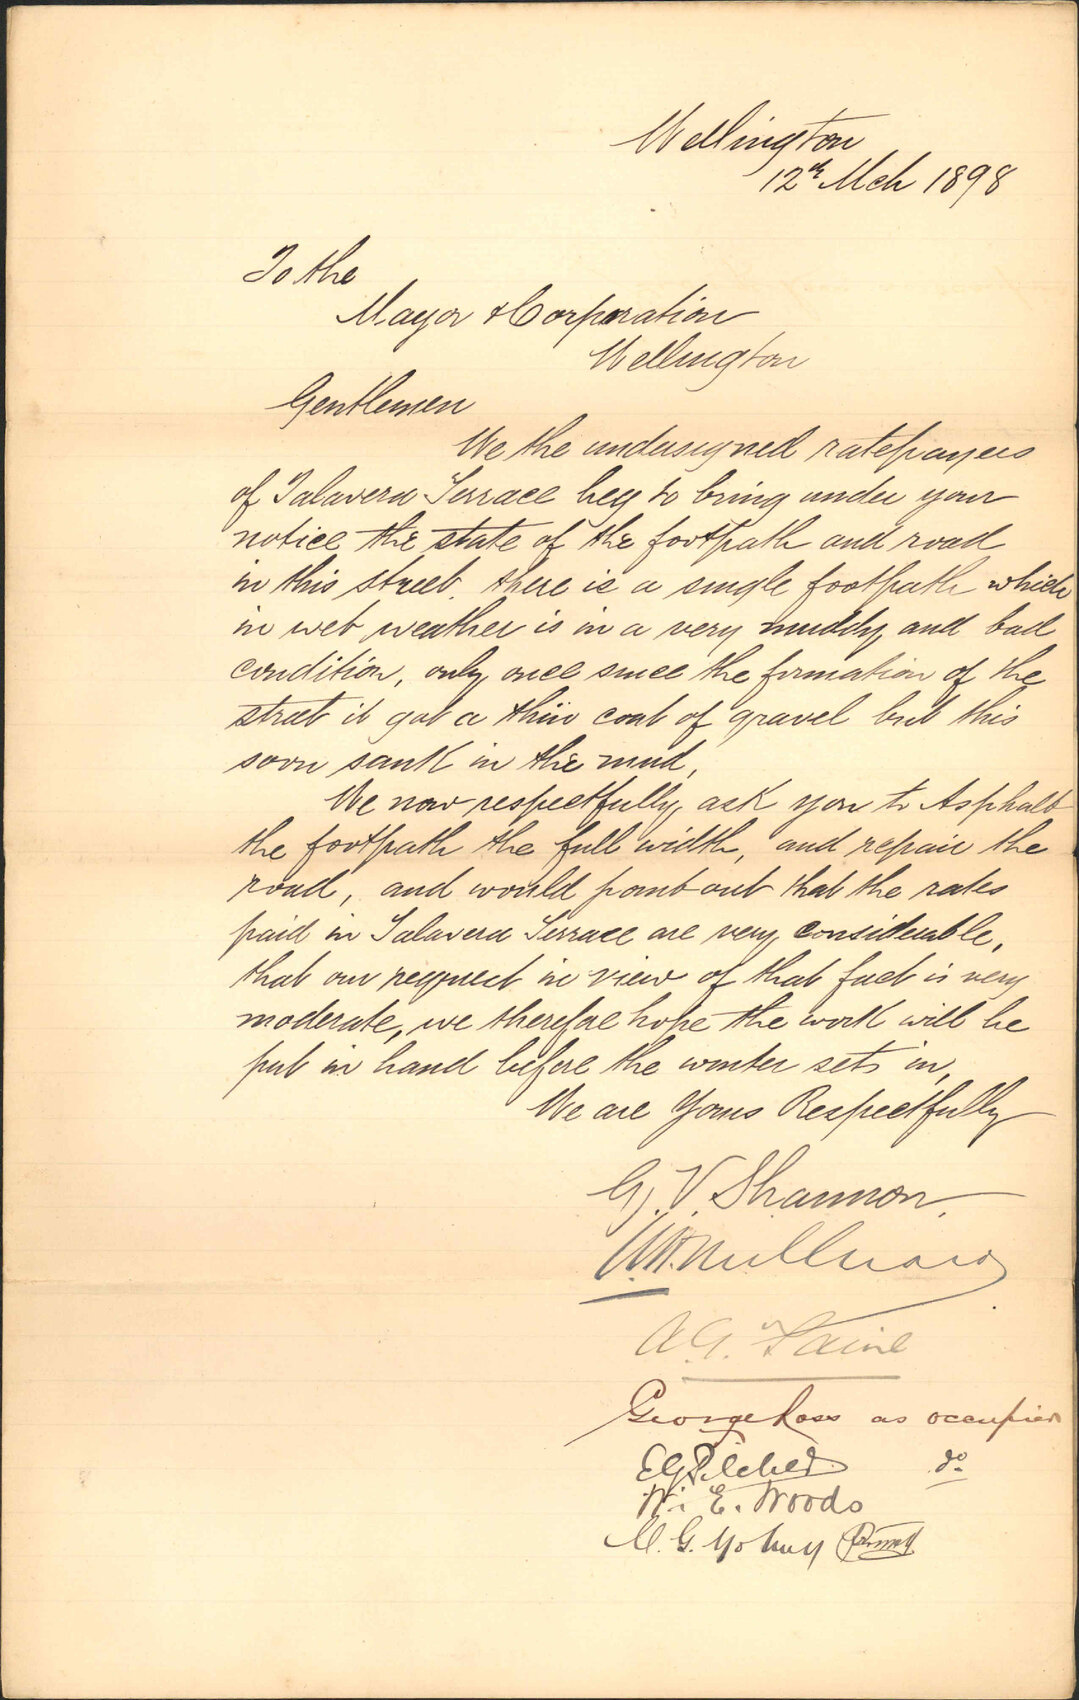 Wellington
12th Mch 1898
To the
Mayor & Corporation
Wellington
Gentlemen
We the undersigned ratepayers
of Talavera Terrace beg to bring under your
notice the state of the footpath and road
in this street. there is a single footpath which
in wet weather is in a very muddy and bad
condition, only once since the formation of the
street it got a thin coat of gravel but this
soon sank in the mud,
We now respectfully ask you to Asphalt
the footpath the full width, and repair the
road, and would point out that the rates
paid in Talavera Terrace are very considerable,
that our request in view of that fact is very
moderate, we therefore hope the work will be
put in hand before the winter sets in,
We are Yours Respectfully
G. V. Shannon.
A. G.
George Ross as occupier
E G Pilcher do
W. E. Woods
M. G.